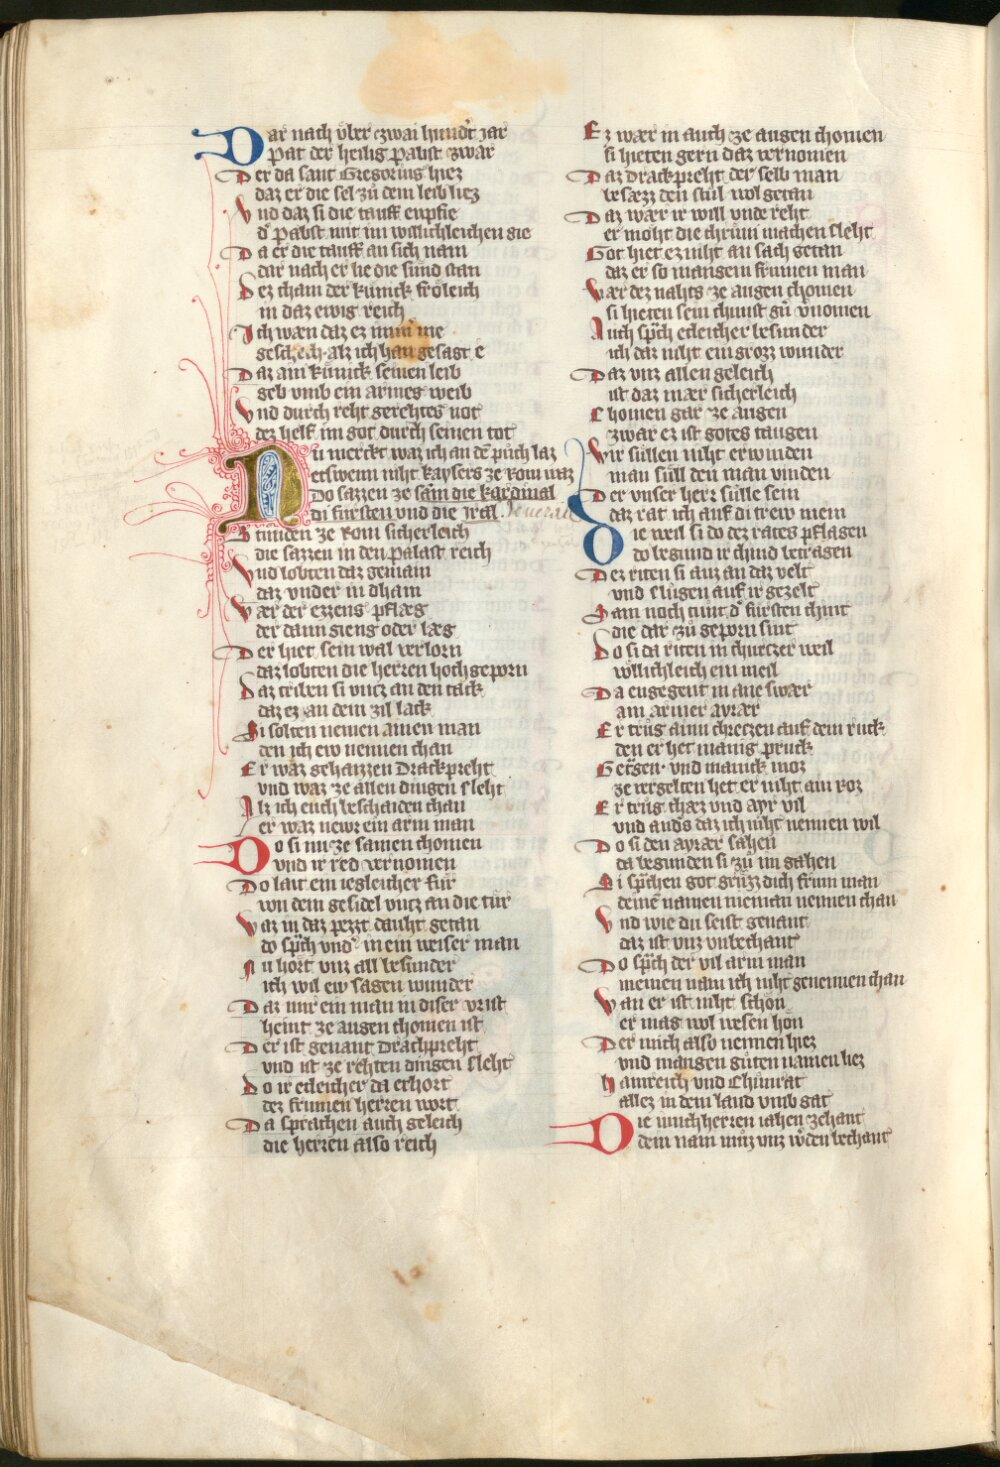 Dar nach vber zwai hundt iar
pat der heilig pabst zwar
Der da sant Gregorius hiez
daz er die sel zů dem leib liez
Vnd daz si die tauff enpfie
d pabst mit im willichleichen gie
Da er die tauff an sich nam
dar nach er lie die sund stan
Dez cham der künick frőleich
in daz ewig reich
Ich wæn daz ez nimͣ me
geschech alz ich han gesagt e
Daz ain künick seinen leib
geb vmb ein armes weib
Vnd durch reht gerehtes not
dez helf im got durch seinen tot
Nu merckt waz ich an dē půch laz
etswenn niht kaysers ze Rom waz
Do sazzen ze sam die kardinal
di fürsten vnd die zal
Stunden ze Rom sicherleich
die sazzen in den palast reich
Vnd lobten daz gemain
daz vnder in dham
Wær der ezzens pflæg
der dann gieng oder læg
Der hiet sein wal verlorn
daz lobten die herren hoch geporn
Daz triben si vncz an den tack
daz ez an dem zil lack
Si solten nemen ainen man
den ich ew nennen chan
Er waz gehaizzen Drackpreht
vnd waz ze allen dingen sleht
Alz ich euch beschaiden chan
er waz newr ein arm man
Do si nu ze samen chomen
vnd ir red vernomen
Do lait ein iegleicher für
von dem gesidel vncz an die tür
Waz in daz pezzt dauht getan
do sp̄ch vnd in ein weiser man
Nu hort vnz all besunder
ich wil ew sagen wunder
Daz mir ein man in diser vrist
heint ze augen chomen ist
Der ist genant Drachpreht
vnd ist ze rehten dingen sleht
Do ir etleicher da erhort
dez frumen herren wort
Da sprachen auch geleich
die herren also reich
Ez wær in auch ze augen chomen
si hieten gern daz vernomen
Daz drackpreht der selb man
besæzz den stůl wol getan
Daz wær ir will vnde reht
er moht die chrum machen sleht
Got hiet ez niht an sach getan
daz er so mangem frumen man
Wær dez nahts ze augen chomen
si hieten sein chunst gů vnomen
Auch sp̄ch etleicher besunder
ich daz niht ein grozz wunder
Daz vnz allen geleich
ist daz mær sicherleich
Chomen gar ze augen
zwar ez ist gotes taugen
Wir süllen niht erwinden
man süll den man vinden
Der vnser herr sülle sein
daz rat ich auf di trew mein
Die weil si do dez rates pflagen
do begund ir chind betragen
Dez riten si auz an daz velt
vnd slůgen auf ir gezelt
Sam noch tunt d fürsten chint
die dar zů geporn sint
Do si da riten in churczer weil
wőllichleich ein meil
Da engegent in ane swær
ain armer ayrær
Er trůg ainn chreczen auf dem ruck
den er het manig pruck
Getragen vnd manick moz
ze vergelten het er niht ain roz
Er trůg chæz vnd ayr vil
vnd anders daz ich niht nennen wil
Do si den ayrær sahen
da begunden si zů im gahen
Si sp̄chen got grůzz dich frum man
deinē namen nieman nennen chan
Vnd wie du seist genant
daz ist vnz vnbechant
Do sp̄ch der vil arm man
meinen nam ich niht genennen chan
Wan er ist niht schon
er mag wol wesen hőn
Der mich also nennen hiez
vnd mangen gůten namen liez
Hainreich vnd Chůnrat
allez in dem land vmb gat
Die iunchherren iahen zehant
dein nam můz vnz wden bechant